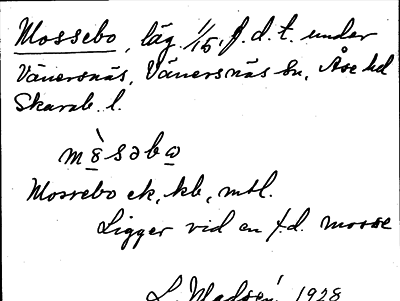 Mossebo, läg. 1/15, f. d. t. under
Vänersnäs, Vänersnäs sn, Åse hd
Skarab. l.
mòsəbω
Mossebo ek, kb, mtl.
Ligger vid en f.d. mosse
1928